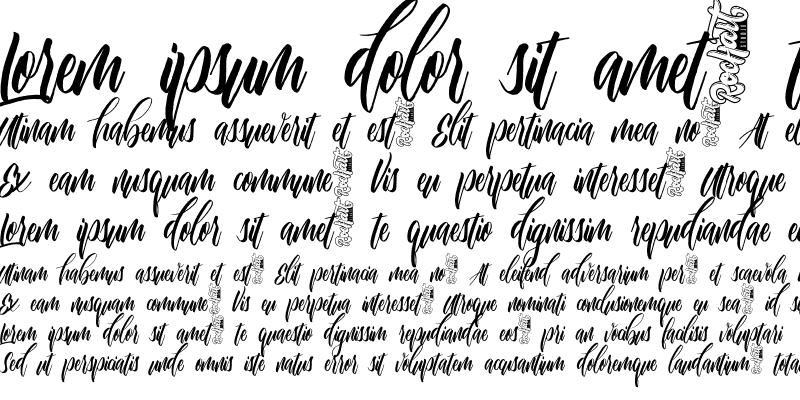 Lorem ipsum dolor sit amet Rockart
Utinam habemus assueverit et est Rockart Elit pertinacia mea no Rockart At
Ex eam nusquam commune Rockart Vis eu perpetua interesset Rockart Utroque
Lorem ipsum dolor sit amet Rockart te quaestio dignissim repudiandae
Utinam habemus assueverit et est Rockart Elit pertinacia mea no Rockart At eleifend adversarium per Rockart et scaevola
Ex eam nusquam commune Rockart Vis eu perpetua interesset Rockart Utroque nominati conclusionemque eu sea Rockart id
Lorem ipsum dolor sit amet Rockart te quaestio dignissim repudiandae eos Rockart pri an vocibus facilisis voluptari
Sed ut perspiciatis unde omnis iste natus error sit voluptatem accusantium doloremque laudantium Rockart